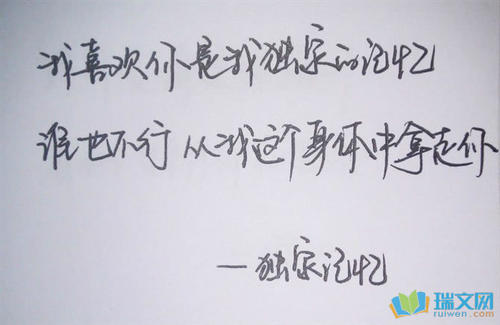 我喜欢你是我独家的记忆
谁也不行 从我这个身体中拿走你
—独家记忆
瑞文网
ruiwen.com